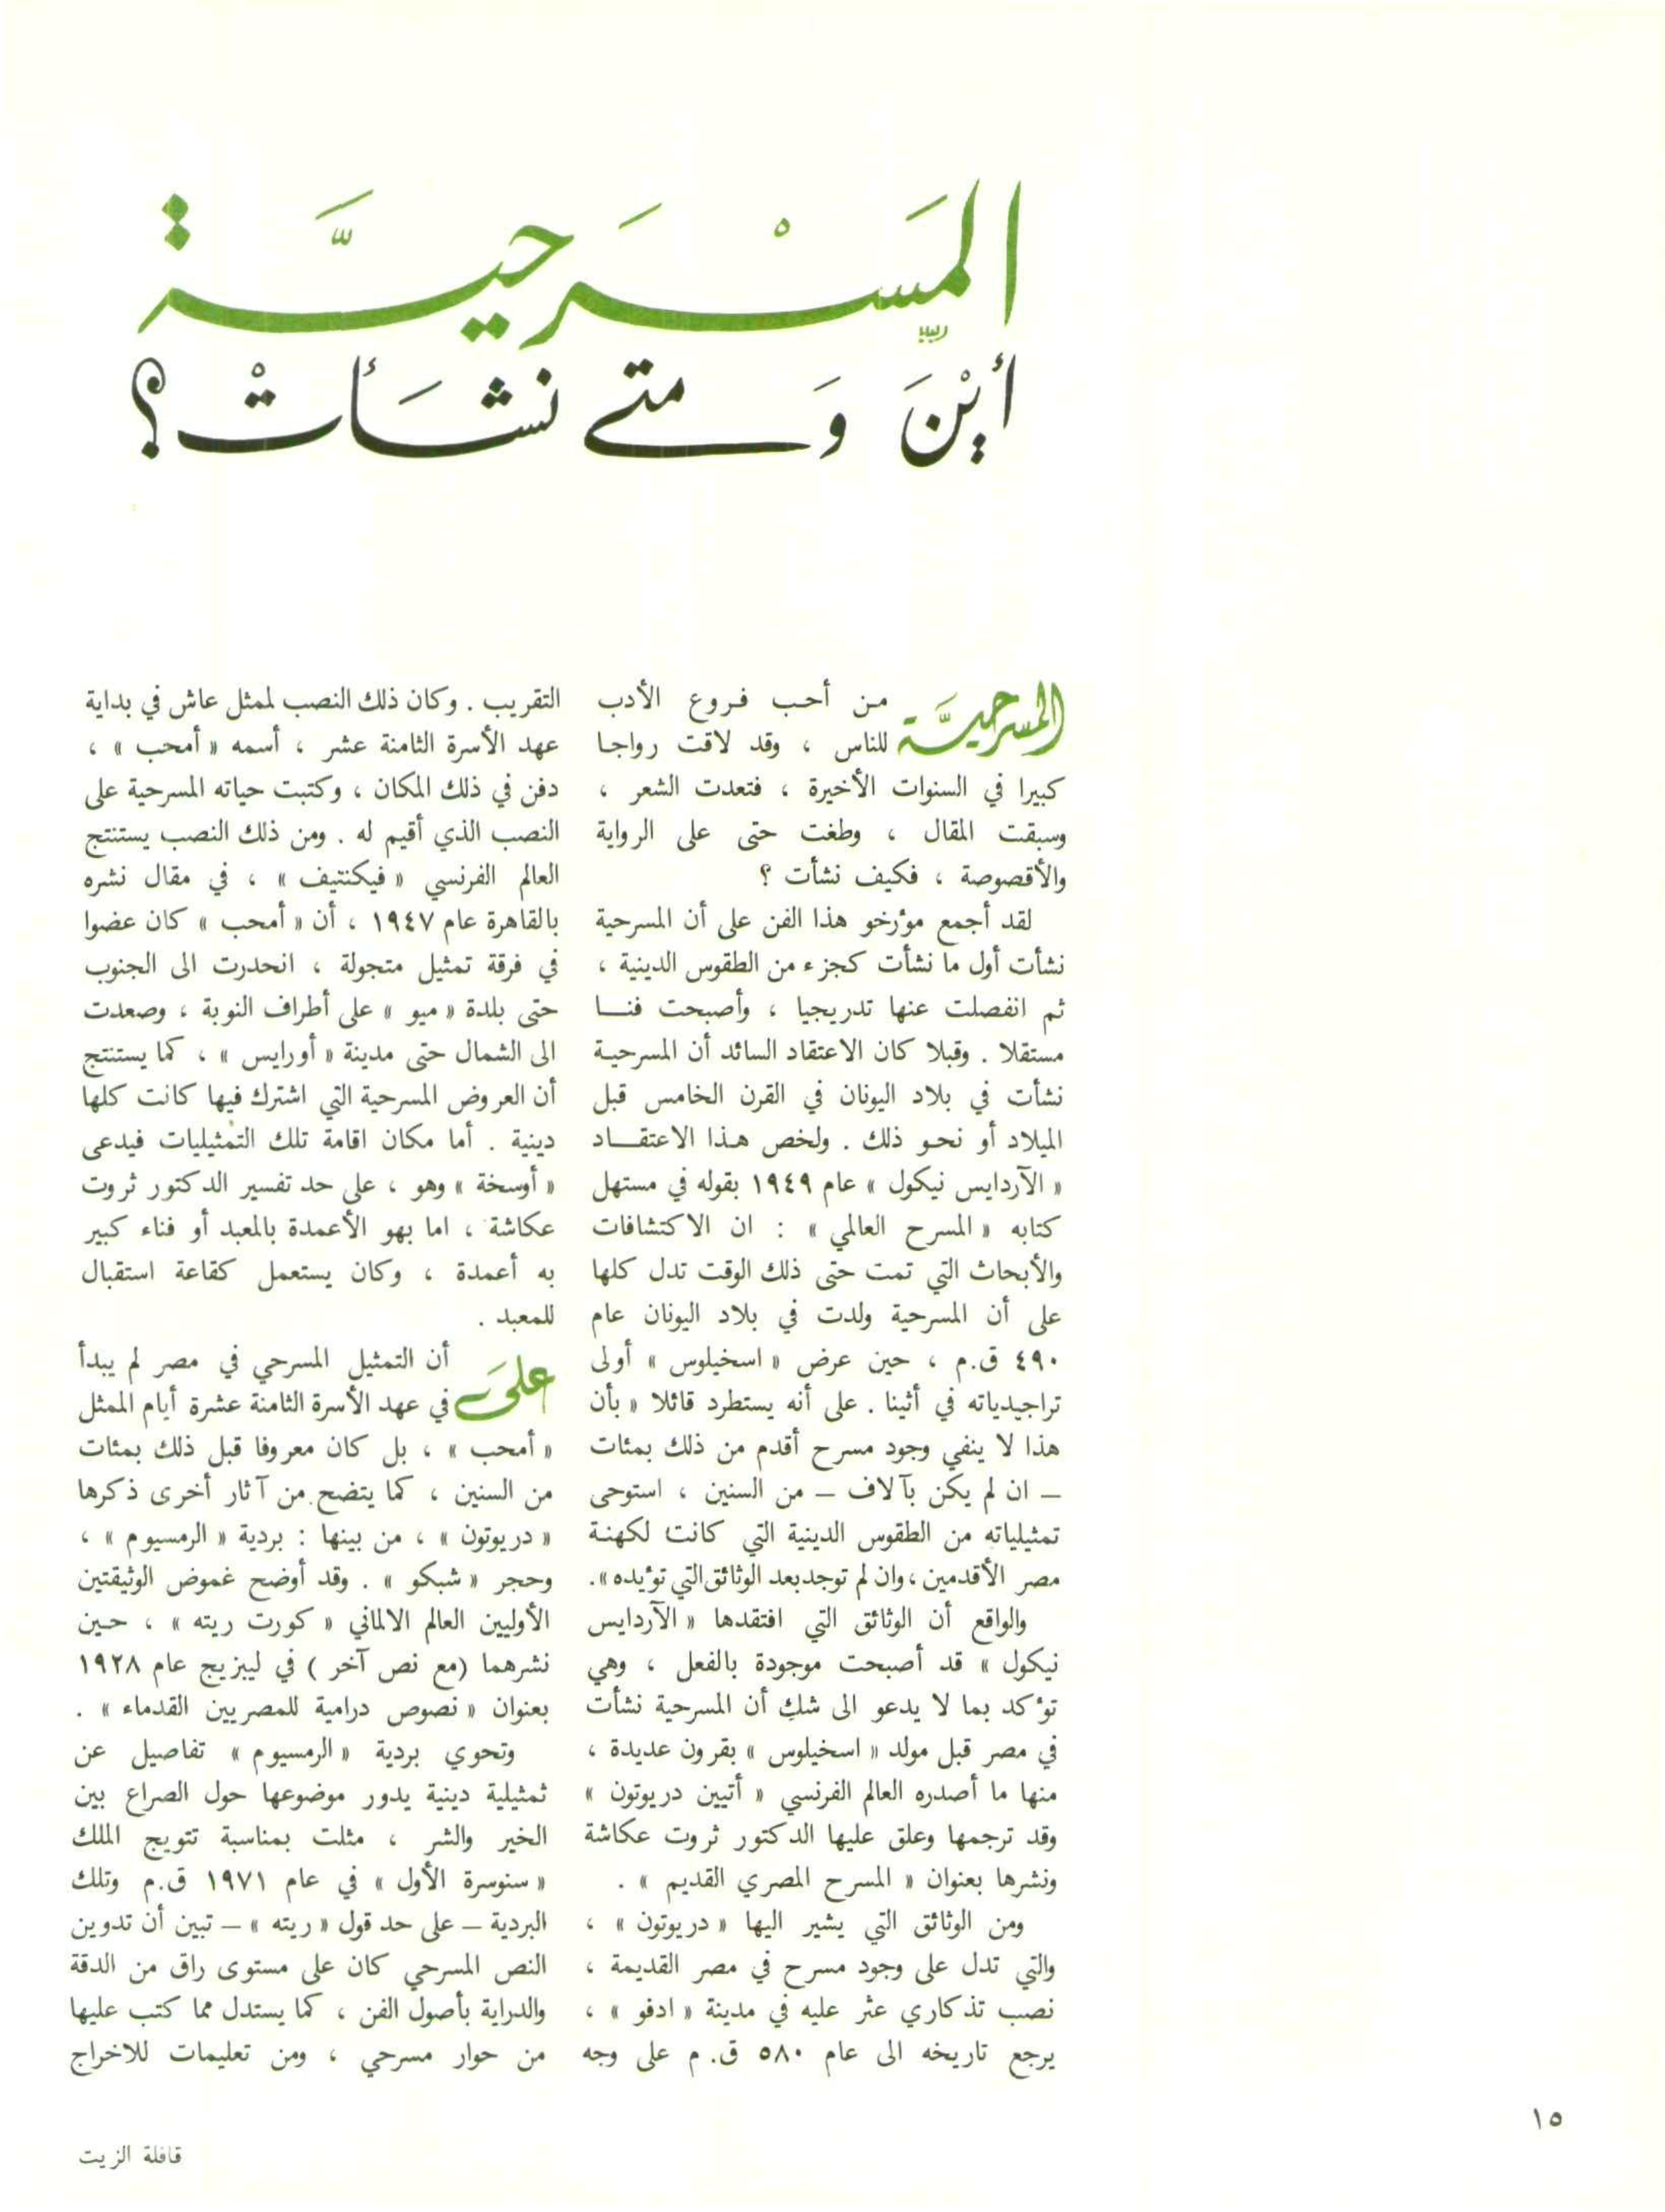 المَسْرَحيَّة
أيْنَ وَمتى نشَأتْ؟
المسرحيَّة من أحب فروع الأدب
للناس ، وقد لاقت رواجا
كبيرا في السنوات الأخيرة ، فتعدت الشعر ،
وسبقت المقال ، وطغت حتى على الرواية
والأقصوصة ، فكيف نشأت ؟
لقد أجمع مؤرخو هذا الفن على أن المسرحية
نشأت أول ما نشأت كجزء من الطقوس الدينية ،
ثم انفصلت عنها تدريجيا ، وأصبحت فنـا
مستقلا . وقبلا كان الاعتقاد السائد أن المسرحية
نشأت في بلاد اليونان في القرن الخامس قبل
الميلاد أو نحو ذلك . ولخص هذا الاعتقـاد
« الآردايس نيكول » عام ١٩٤٩ بقوله في مستهل
كتابه « المسرح العالمي » : ان الاكتشافات
والأبحاث التي تمت حتى ذلك الوقت تدل كلها
على أن المسرحية ولدت في بلاد اليونان عام
٤٩٠ ق.م ، حين عرض « اسخيلوس » أولى
تراجيدياته في أثينا . على أنه يستطرد قائلا « بأن
هذا لا ينفي وجود مسرح أقدم من ذلك بمئات
– ان لم يكن بآلاف – من السنين ، استوحى
تمثيلياته من الطقوس الدينية التي كانت لكهنة
مصر الأقدمين ، وان لم توجد بعد الوثائق التي تؤيده ».
والواقع أن الوثائق التي افتقدها « الآردايس
نيكول » قد أصبحت موجودة بالفعل ، وهي
تؤكد بما لا يدعو الى شك أن المسرحية نشأت
في مصر قبل مولد « اسخيلوس » بقرون عديدة ،
منها ما أصدره العالم الفرنسي « أتيين دريوتون »
وقد ترجمها وعلق عليها الدكتور ثروت عكاشة
ونشرها بعنوان « المسرح المصري القديم » .
ومن الوثائق التي يشير اليها « دريوتون » ،
والتي تدل على وجود مسرح في مصر القديمة ،
نصب تذكاري عثر عليه في مدينة « ادفو » ،
يرجع تاريخه الى عام ٥٨٠ ق. م على وجه
التقريب . وكان ذلك النصب لممثل عاش في بداية
عهد الأسرة الثامنة عشر ، أسمه « أمحب » ،
دفن في ذلك المكان ، وكتبت حياته المسرحية على
النصب الذي أقيم له . ومن ذلك النصب يستنتج
العالم الفرنسي « فيكنتيف » ، في مقال نشره
بالقاهرة عام ١٩٤٧ ، أن « أمحب » كان عضوا
في فرقة تمثيل متجولة ، انحدرت الى الجنوب
حتى بلدة « ميو » على أطراف النوبة ، وصعدت
الى الشمال حتى مدينة « أورايس » ، كما يستنتج
أن العروض المسرحية التي اشترك فيها كانت كلها
دينية . أما مكان اقامة تلك التمثيليات فيدعى
« أوسخة » وهو ، على حد تفسير الدكتور ثروت
عكاشة ، اما بهو الأعمدة بالمعبد أو فناء كبير
به أعمدة ، وكان يستعمل كقاعة استقبال
للمعبد .
علىَ أن التمثيل المسرحي في مصر لم يبدأ
في عهد الأسرة الثامنة عشرة أيام الممثل
« أمحب » ، بل كان معروفا قبل ذلك بمئات
من السنين ، كما يتضح من آثار أخرى ذكرها
« دريوتون » ، من بينها : بردية « الرمسيوم » ،
وحجر « شبكو » . وقد أوضح غموض الوثيقتين
الأوليين العالم الالماني « كورت ريته » ، حين
نشرهما (مع نص آخر ) في ليبزيج عام ١٩٢٨
بعنوان « نصوص درامية للمصريين القدماء » .
وتحوي بردية « الرمسيوم » تفاصيل عن
ثمثيلية دينية يدور موضوعها حول الصراع بين
الخير والشر ، مثلت بمناسبة تتويج الملك
« سنوسرة الأول » في عام ١٩٧١ ق.م وتلك
البردية – على حد قول « ريته » – تبين أن تدوين
النص المسرحي كان على مستوى راق من الدقة
والدراية بأصول الفن ، كما يستدل مما كتب عليها
من حوار مسرحي ، ومن تعليمات للاخراج
١٥
قافلة الزيت